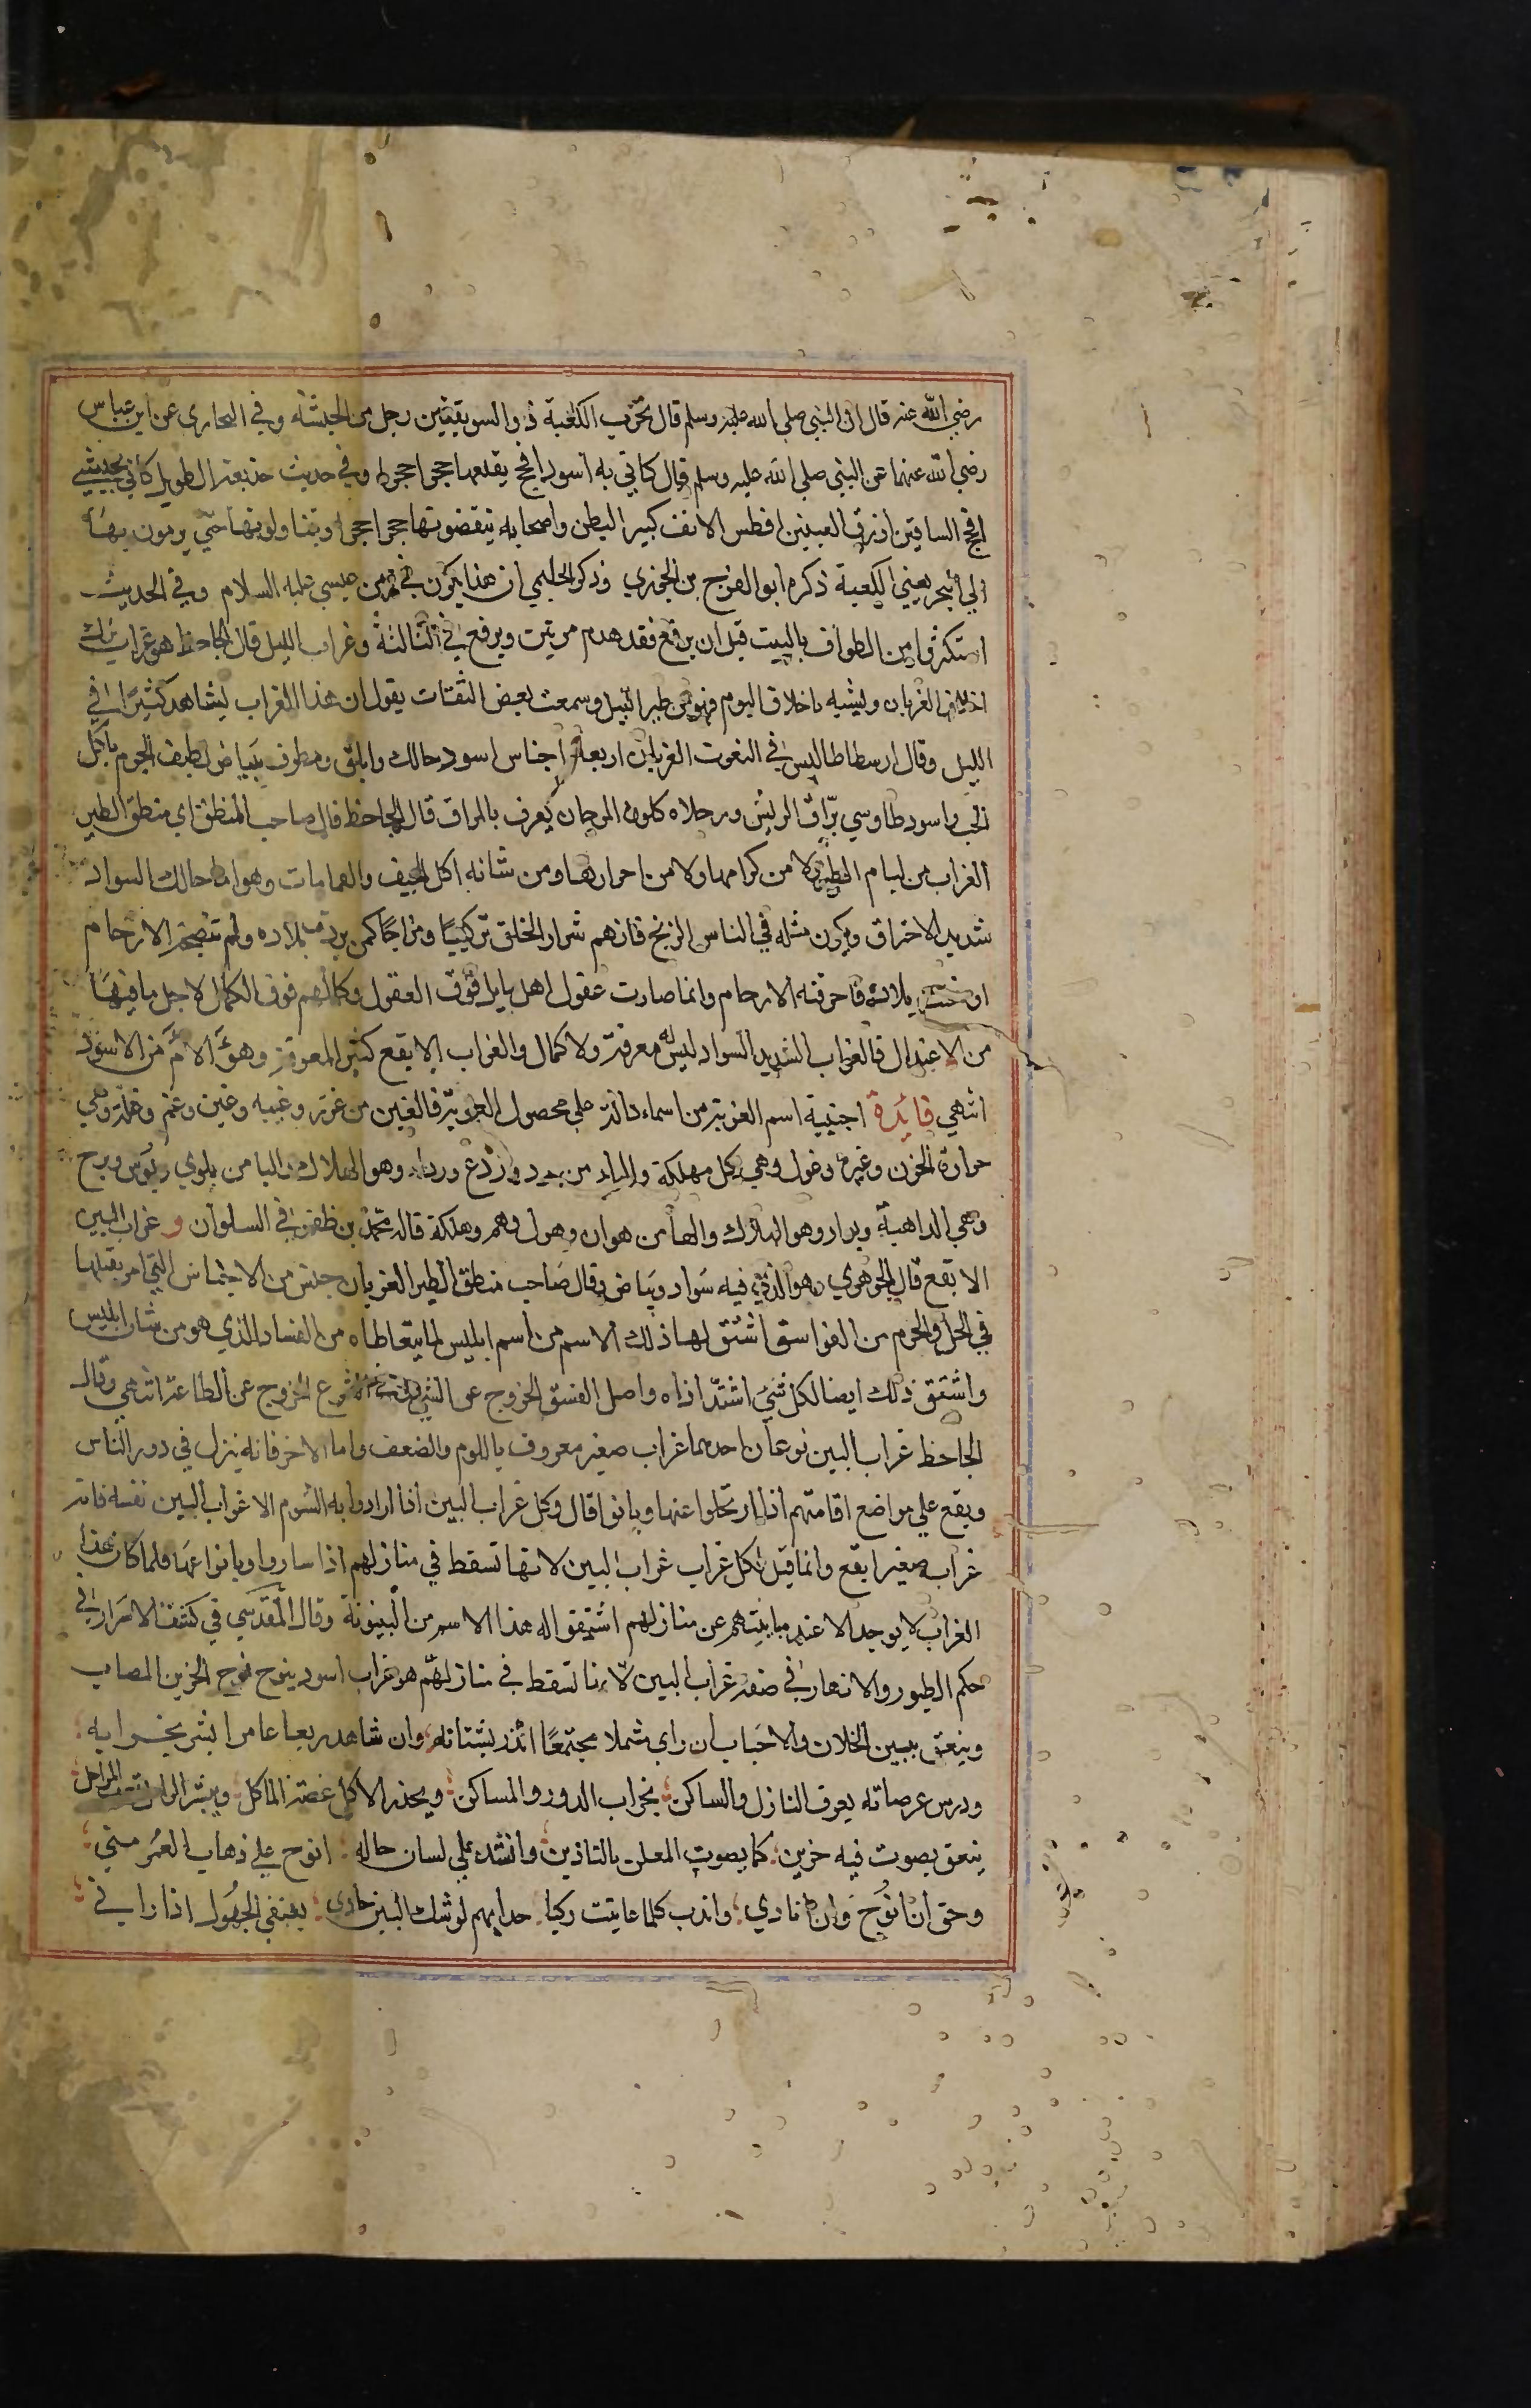 رضي الله عنه قال ان النبي صلى الله عليه وسلم قال تخرب الكعبة ذو السويقتين رجل من الحبشة وفي البخاري عن ابن عباس
رضي الله عنهما عن النبي صلى الله عليه وسلم قال كاني به اسود افحج يقلعها حجرا حجرا وفي حديث حذيفة الطويل كاني بحبشي
افحج الساقين ازرق العينين افطس الانف كبير البطن واصحابه ينقضونها حجرا حجرا ويتناولونها حتى يرمون بها
الى البحر يعني الكعبة ذكره ابو الفرج بن الجوزي وذكر الحليمي ان هذا يكون في زمن عيسى عليه السلام وفي الحديث
استكثروا من الطواف بالبيت قبل ان يرفع فقد هدم مرتين ويرفع في الثالثة وغراب الليل قال الجاحظ هو غراب ترك
اخلاق الغربان ويشبه باخلاق البوم فهو من طير الليل وسمعت بعض الثقات يقول ان هذا الغراب يشاهد كثيرا في
الليل وقال ارسطاطاليس في النعوت الغربان اربعة اجناس اسود حالك وابلق ومطرف ببياض لطيف الجرم ياكل
الحب واسود طاوسي براق الريش ورجلاه كلون المرجان يعرف بالزاق قال الجاحظ قال صاحب المنطق اي منطق الطير
الغراب من ليام الطير لا من كرامها ولا من احرارها ومن شانه اكل الجيف والقمامات وهو اما حالك السواد
شديد الاحتراق ويكون مثله في الناس الزنج فانهم شرار الخلق تركيبا ومزاجا كمن برد بلاده ولم تنضجه الارحام
او سخنت بلاده فاحرقته الارحام وانما صارت عقول اهل بابل فوق العقول وكمالهم فوق الكمال لاجل ما فيها
من الاعتدال فالغراب الشديد السواد ليس له معرفة ولا كمال والغراب الابقع كثير المعرفة وهو الام من الاسود
انتهى فائدة اجنبية اسم الغربة من اسماء دالة على محصول الغربة فالغين من غرر وغيبه وغبن وغم وغلة وهي
حرارة الحزن وغرة وغول وهي كل مهلكة والراء من برد وردع وردى وهو الهلاك والبا من بلوى وبوس وبرح
وهي الداهية وبوار وهو الهلاك والها من هوان وهول وهم وهلكة قاله محمد بن ظفر في السلوان و غراب البين
الابقع قال الجوهري هو الذي فيه سواد وبياض وقال صاحب منطق الطير الغربان جنس من الاجناس التي امر بقتلها
في الحل والحرم من الفواسق اشتق لها ذلك الاسم من اسم ابليس لما يتعاطاه من الفساد الذي هو من شان ابليس
واشتق ذلك ايضا لكل شي اشتد اذاه واصل الفسق الخروج عن الشي وفي الشرع الخروج عن الطاعة انتهى وقال
الجاحظ غراب البين نوعان احدهما غراب صغير معروف باللوم والضعف واما الاخر فانه ينزل في دور الناس
ويقع على مواضع اقامتهم اذا ارتحلوا عنها وبانوا قال وكل غراب البين اذا ارادوا به الشوم الا غراب البين نفسه فانه
غراب صغير ابقع وانما قيل لكل غراب غراب البين لانها تسقط في منازلهم اذا ساروا وبانوا عنها فلما كان هذا
الغراب لا يوجد الا عند مباينتهم عن منازلهم اشتقوا له هذا الاسم من البينونة وقال المقدسي في كشف الاسرار في
حكم الطيور والازهار في صفة غراب البين لانها تسقط في منازلهم هو غراب اسود ينوح نوح الحزين المصاب
وينعق ببين الخلان والاحباب ان راى شملا مجتمعا انذر بشتاته وان شاهد ربعا عامرا بشر بخرابه
ودرس عرصاته يعرف النازل والساكن بخراب الدور والمساكن ويحذر الاكل غصة الماكل ويبشر الراحل بقرب المراحل
ينعق بصوت فيه حزين كما يصوت المعلن بالتاذين وانشد على لسان حاله انوح على ذهاب العمر مني
وحق ان انوح وان انادي واندب كلما عاينت ركبا حدا بهم لوشك البين حادي يعنفني الجهول اذا راني